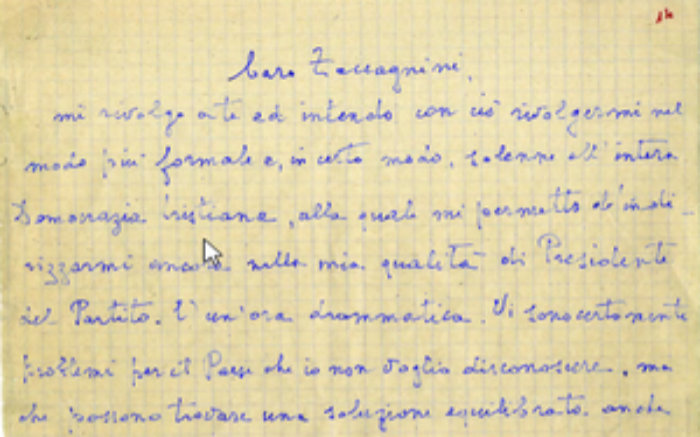 16
Caro Zaccagnini,
mi rivolgo a te ed intendo con ciò rivolgermi nel
modo più formale e, in certo modo, solenne all'intera
Democrazia Cristiana, alla quale mi permetto d'indi-
rizzarmi ancora nella mia qualità di Presidente
del Partito. E' un'ora drammatica. Vi sono certamente
problemi per il Paese che io non voglio disconoscere, ma
che possono trovare una soluzione equilibrata anche